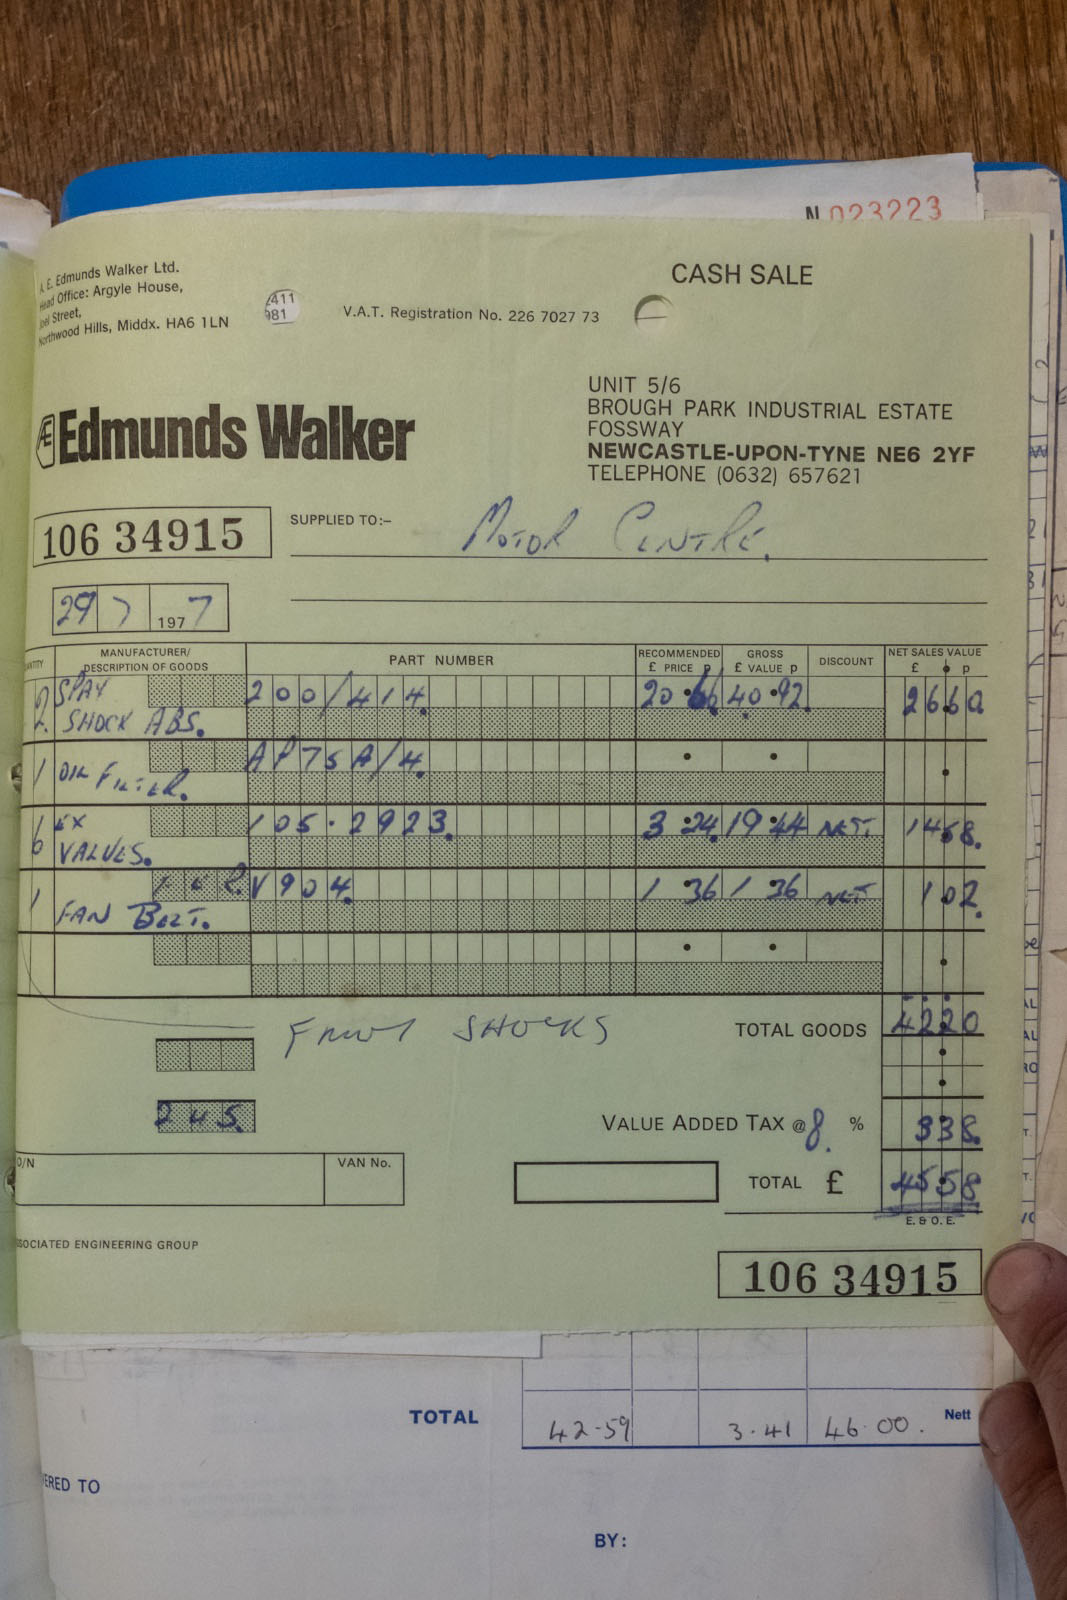 N 023223
A. E. Edmunds Walker Ltd.
Head Office: Argyle House,
Joel Street,
Northwood Hills, Middx. HA6 1LN
411
981
V.A.T. Registration No. 226 7027 73
CASH SALE
Æ Edmunds Walker
UNIT 5/6
BROUGH PARK INDUSTRIAL ESTATE
FOSSWAY
NEWCASTLE-UPON-TYNE NE6 2YF
TELEPHONE (0632) 657621
106 34915
SUPPLIED TO:–
MOTOR CENTRE.
29 7 1977
ANTITY
MANUFACTURER/
DESCRIPTION OF GOODS
PART NUMBER
RECOMMENDED
£ PRICE p
GROSS
£ VALUE p
DISCOUNT
NET SALES VALUE
£ p
2 SPAX 200/414. 20.66 40.92 26.60
SHOCK ABS.
1 OIL FILTER. AP75A/4.
6 EX 105.2923. 3.24 19.44 NET. 14.58.
VALVES.
1 V904. 1 36 1 36 NET 1 02.
FAN BELT.
FRONT SHOCKS
TOTAL GOODS 42.20
VALUE ADDED TAX @ 8. % 3 38.
O/N
VAN No.
TOTAL £ 45.58
E. & O. E.
SSOCIATED ENGINEERING GROUP
106 34915
TOTAL 42-59 3.41 46.00. Nett
ERED TO
BY: